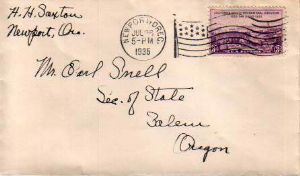 H. H. Saxton
Newport, Ore.
NEWPORT, OREG.
JUL
5-PM
1935
Mr. Earl Snell
Sec. of State
Salem
Oregon